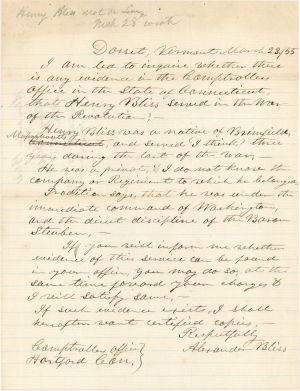 Henry Bliss not on Living
Dorset, Vermont, March 23/55
I am led to inquire whether there
is any evidence in the Comptrollers
Office in the State of Connecticut,
that Henry Bliss served in the War
of the Revolution? -
Henry Bliss was a native of Brimfield,
Massachusetts
Connecticut, and served I think three
years during the last of the war, -
He was a private, & I do not know the
company or Regiment to which he belonged,
Tradition says, that he was under the
immediate command of Washington,
and the direct discipline of the Baron
Steuben, -
If you will inform me whether
evidence of this service can be found
in your office, you may do so, at the
same time forward your charges &
I will satisfy same, -
If such evidence exists, I shall
hereafter want certified copies, -
Respectfully
Comptrollers office } Alexander Bliss
Hartford Con. }